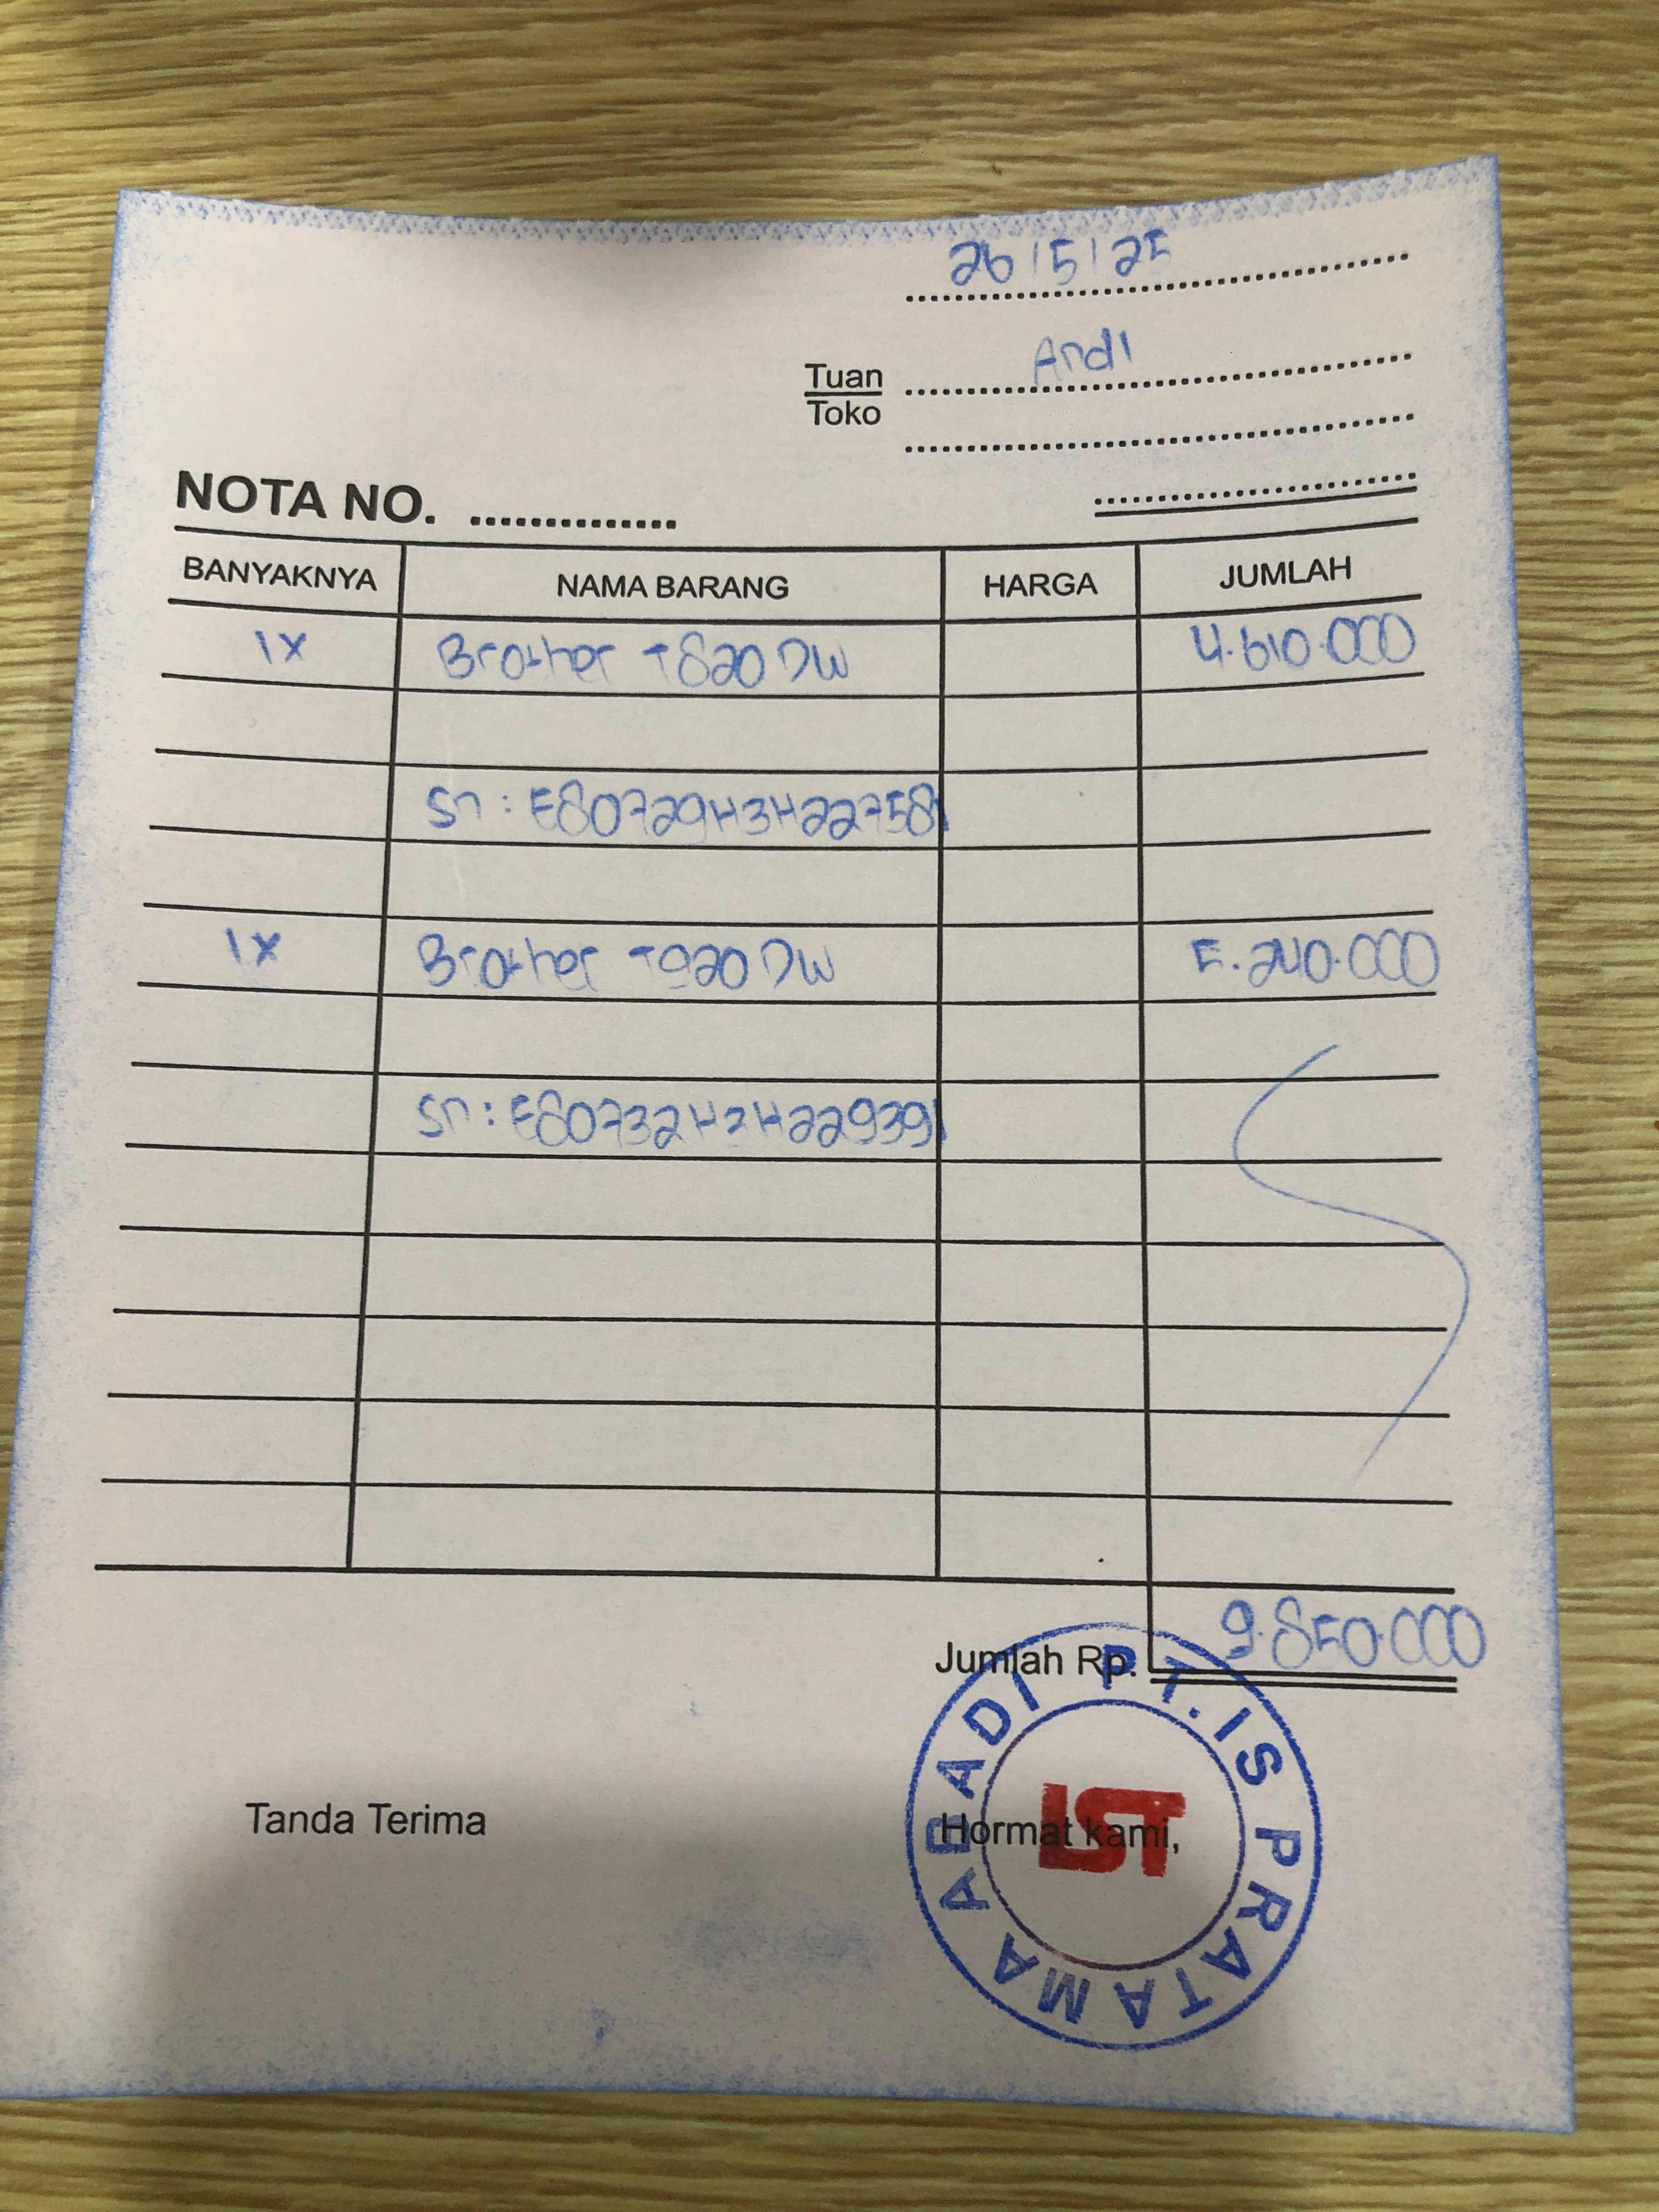 26/5/25
Tuan Andi
Toko
NOTA NO.
BANYAKNYA NAMA BARANG HARGA JUMLAH
1x Brother T820DW 4.610.000
Sn : E80729H3H227581
1x Brother T920DW 5.240.000
Sn : E80732H2H229391
Jumlah Rp. 9.850.000
Tanda Terima Hormat kami,
PT. IS PRATAMA ABADI
IST